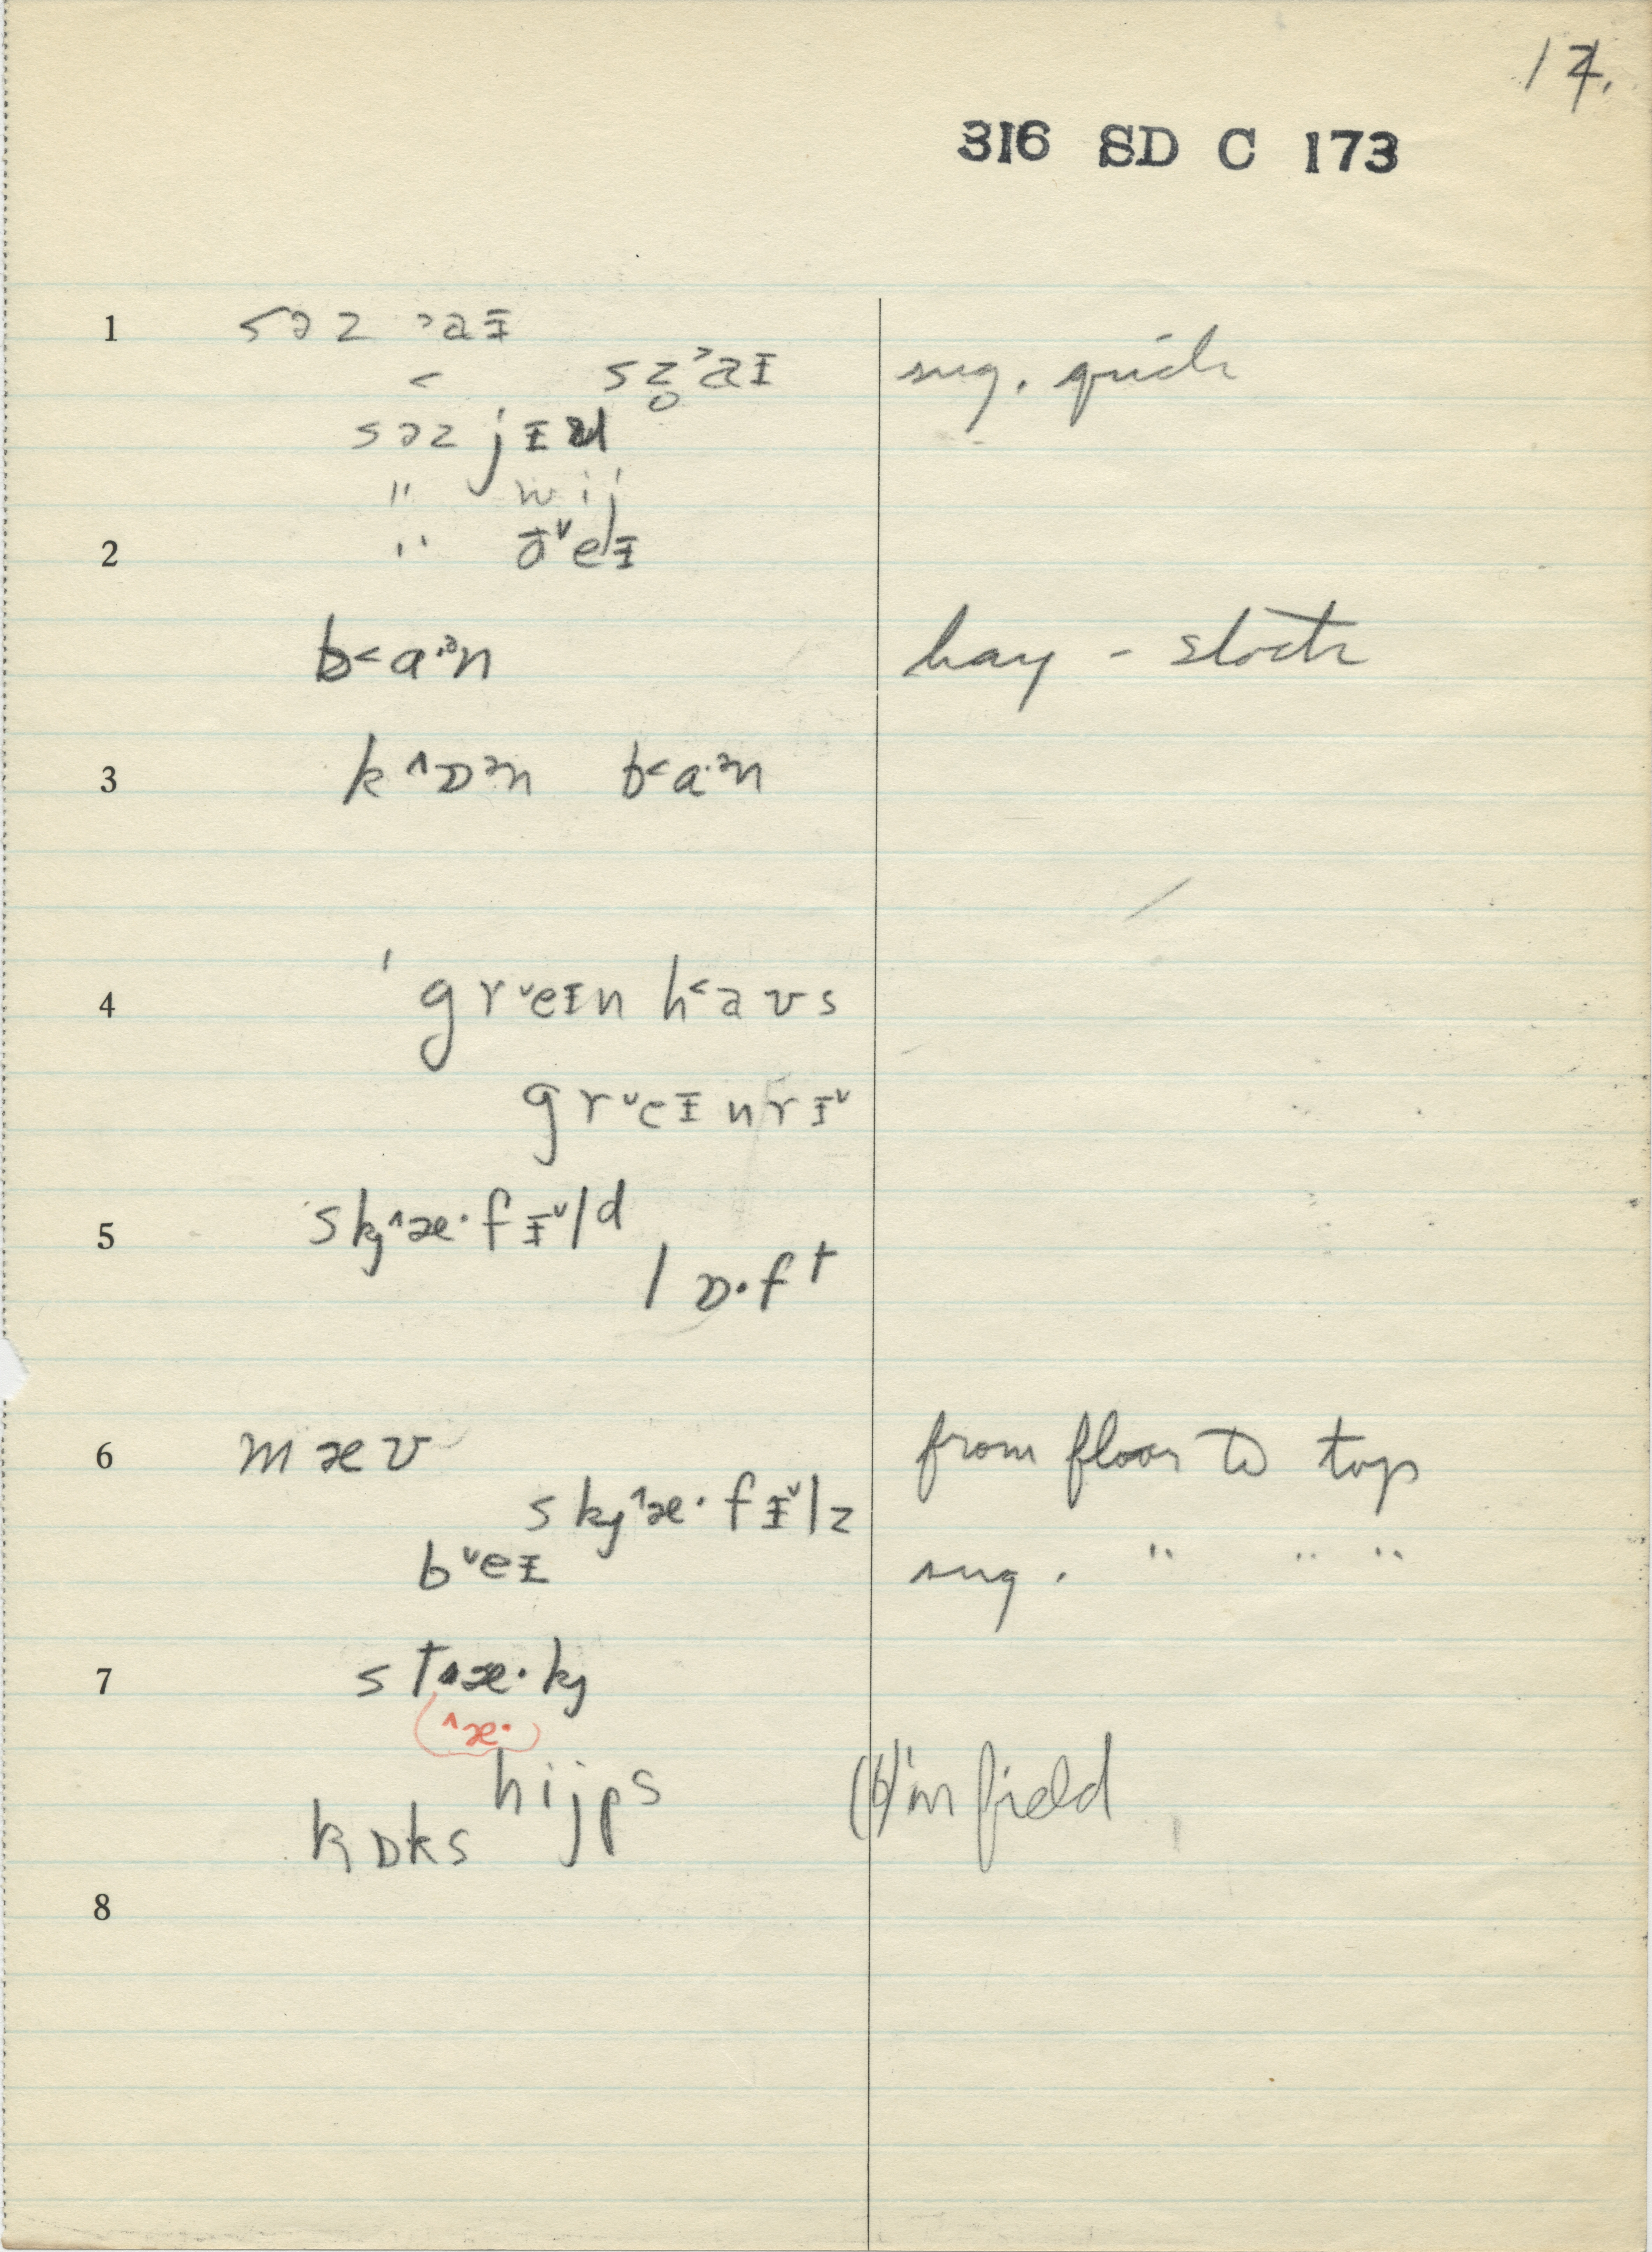 17.
316 SD C 173
1 səz ˃aɪ
˂ sz̥˃aɪ sug. quick
səz jɪu
" wij
2 " ðˇeɪ
b˂a·ᵊn hay - stock
3 k^ɒᵊn b˂a·ᵊn
4 ˈgrˇeɪn h˂aʊs
grˇeɪnrɪˇ
5 skj^æ·fɪˇld
lɒ·ft
6 mæʊ from floor to top
skj^æ·fɪˇlz
bˇeɪ sug. " " "
7 st^æ·kj
(^æ·)
hijps (6) in field
kɒks
8